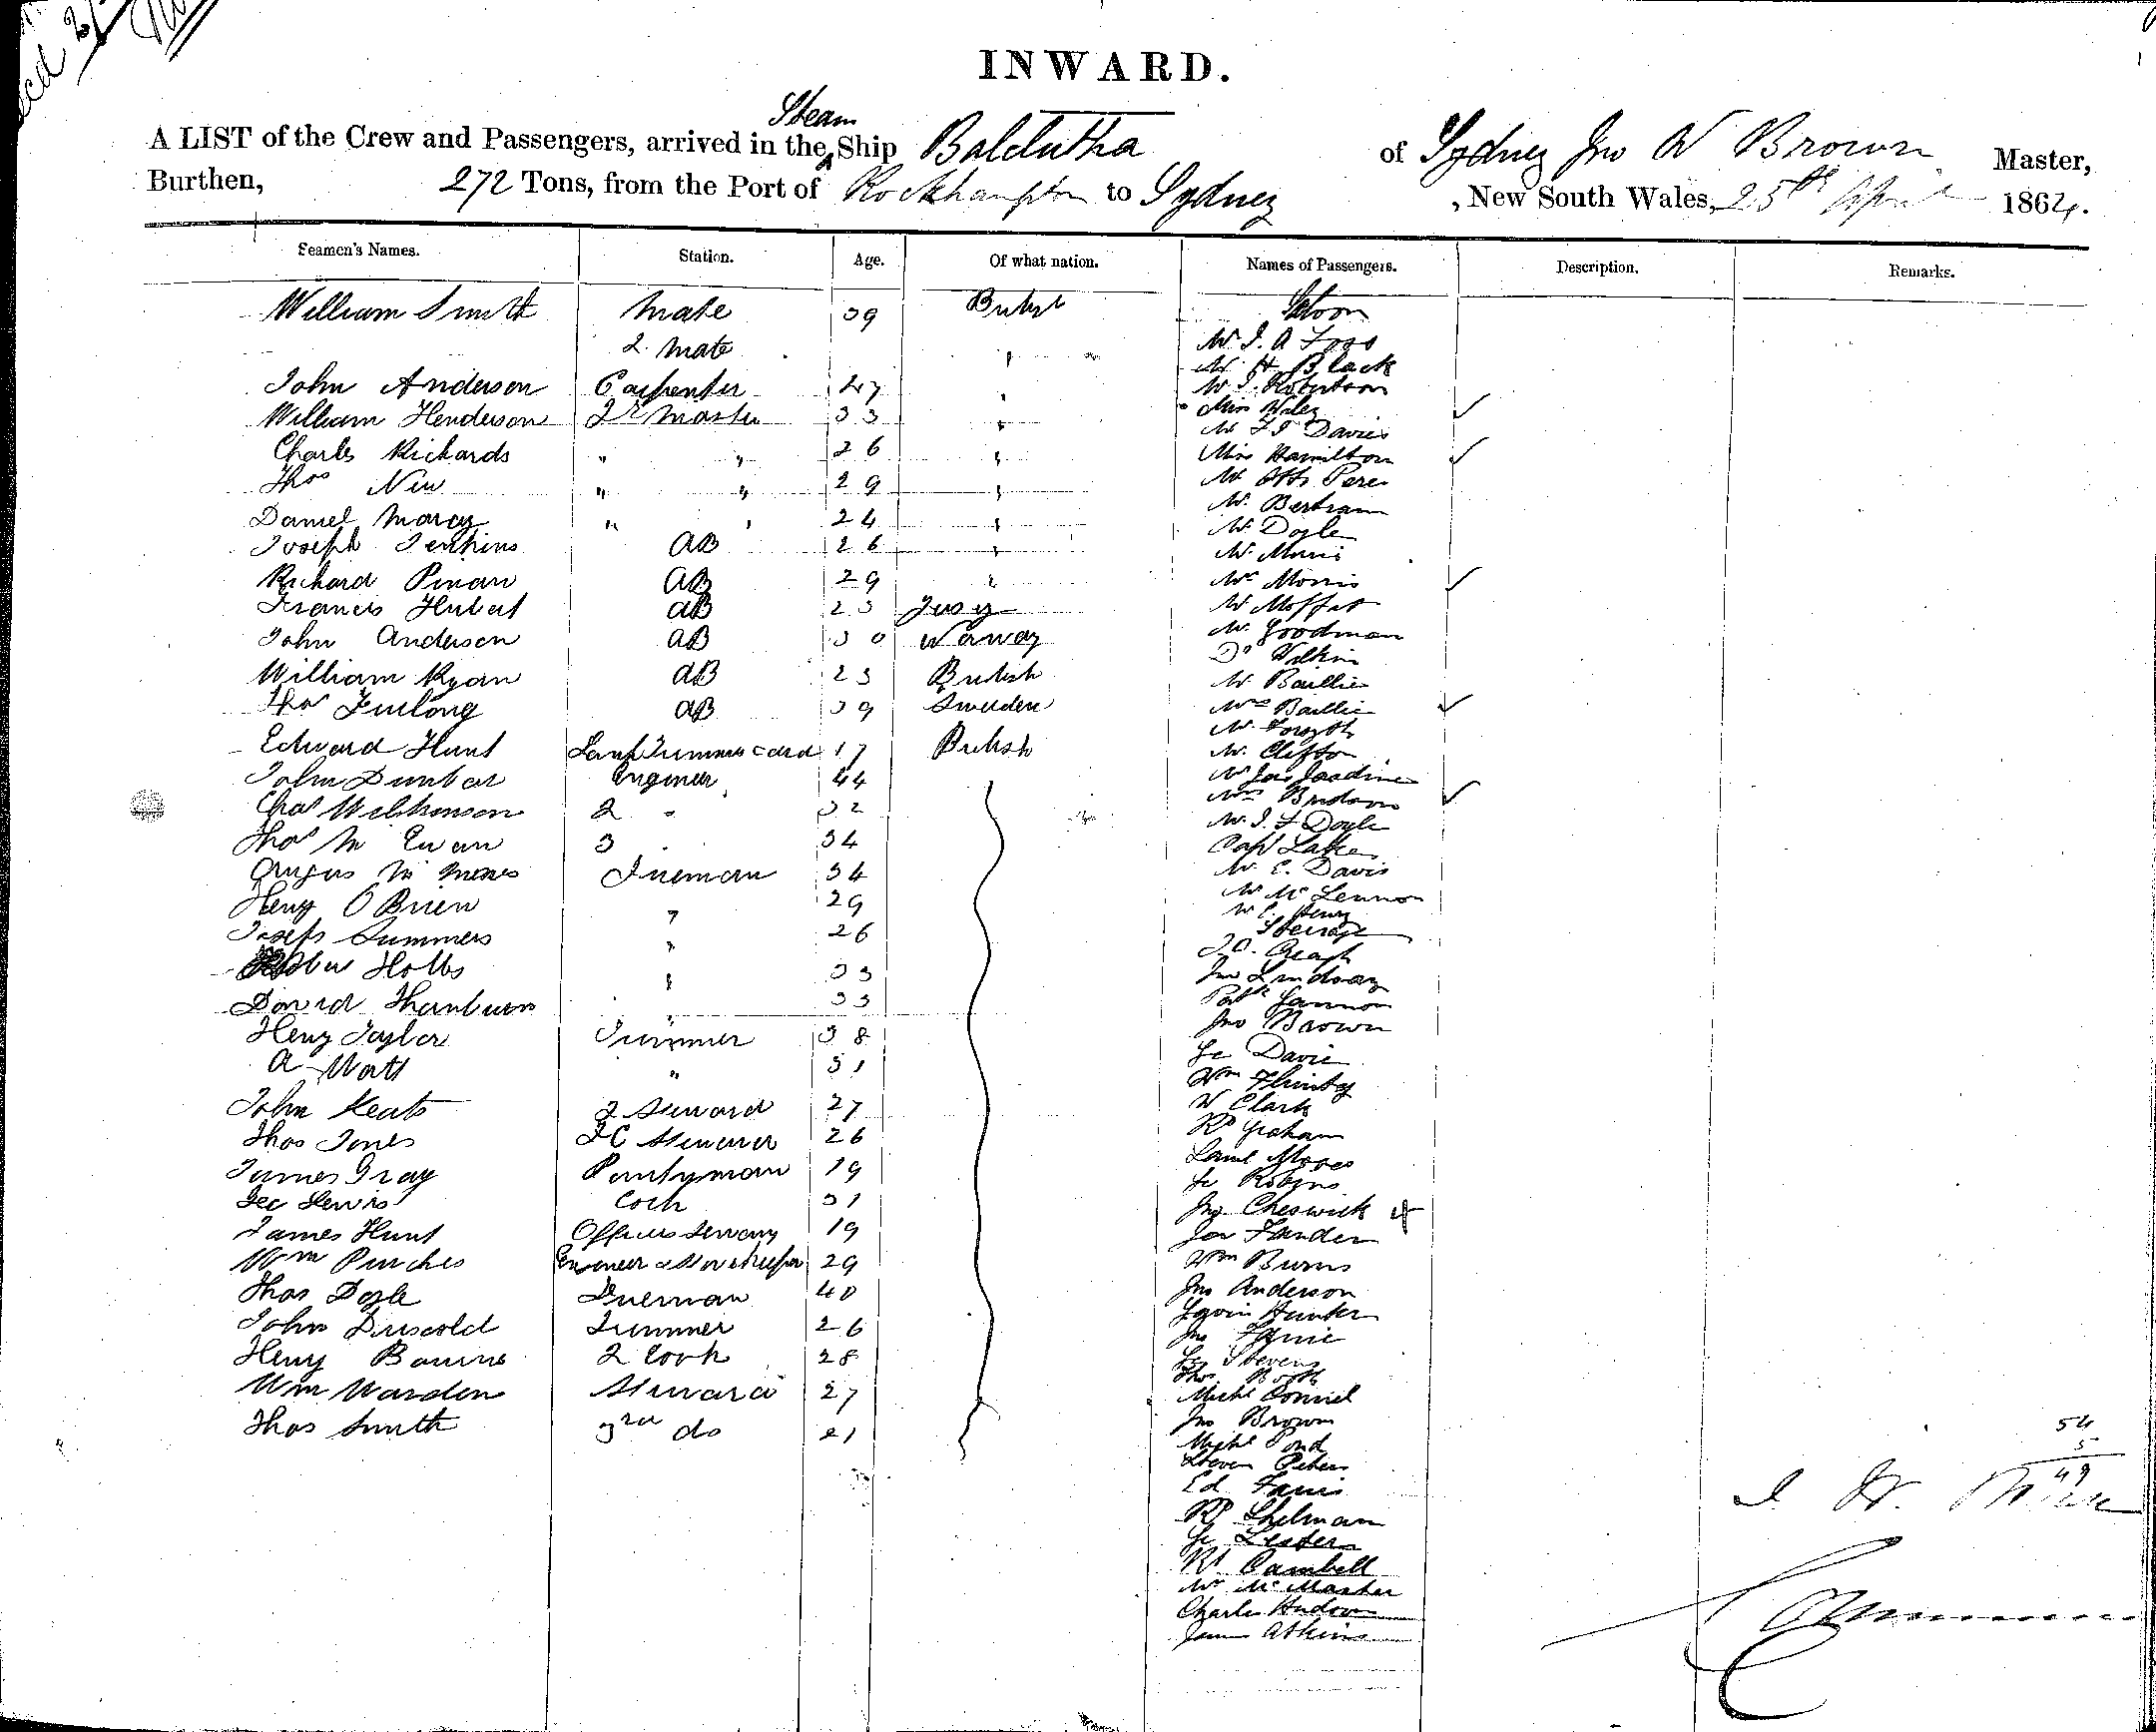 INWARD.
A LIST of the Crew and Passengers, arrived in the Steam Ship Balclutha of Sydney Jno W Brown Master,
Burthen, 272 Tons, from the Port of Rockhampton to Sydney , New South Wales, 25th April 1864.
Seamen's Names. Station. Age. Of what nation. Names of Passengers. Description. Remarks.
William Smith Mate 39 British
2 Mate "
John Anderson Carpenter 47 "
William Henderson Qr Master 33 "
Charles Rickards " " 26 "
Thos " " 29 "
Daniel Marcy " " 24 "
Joseph Jenkins AB 26 "
Richard AB 29 "
Francis Hubert AB 23
John Anderson AB 30 Norway
William Ryan AB 23 British
Thos Furlong AB 39 Sweden
Edward Hunt Lamp Trimmer 17 British
John Dunbar Engineer 44
Chas Wilkinson 2 " 32
Thos Mc Ewan 3 " 34
Angus Mc Fireman 34
Heny O Brien " 29
Joseph Summers " 26
Hobbs " 33
David " 33
Heny Taylor Trimmer 38
A Watt " 31
John Keats 2 Steward 27
Thos Jones 26
James Gray Pantryman 19
Geo Lewis Cook 31
James Hunt Officers Servant 19
Wm Purches Engineer Storekeeper 29
Thos Doyle Fireman 40
John Driscold Trimmer 26
Heny 2 Cook 28
Wm Warden Steward 27
Thos Smith 3rd do 21
Saloon
Mr J. A Foss
Mr H Black
Mr J. Robertson
Miss
Mr F J Davies
Miss Hamilton
Mr
Mr Bertram
Mr Doyle
Mr Morris
Mrs Morris
Mr Moffat
Mr Goodman
Dr Wilkin
Mr Baillie
Mrs Baillie
Mr Forsyth
Mr Clifton
Mr Jas Jardine
Mrs
Mr J. F Doyle
Capt Lake
Mr E. Davis
Mr Mc Lennon
Mr C. Henry
Steerage
J. O. Creagh
Jno Lindsay
Patk Gannon
Jno Brown
Ge Davie
Wm
W Clark
Rt Graham
Saml Moses
Ge Robins
Jno Cheswick
Jos
Wm Burns
Jno Anderson
Gavin Hunter
Jno
Ge Stevens
Thos Booth
Michl Connel
Jno Brown
Michl Pond
Steven Peters
Ed
Rt Shelman
Ge Lester
Rt Cambell
Mr McMaster
Charles
James Atkins
54
5
49